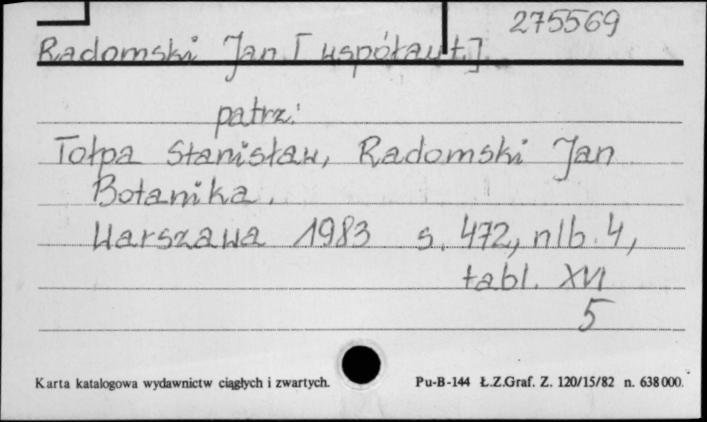 275569
Radomski Jan [współaut.]
patrz:
Tołpa Stanisław, Radomski Jan
Botanika.
Warszawa 1983 s. 472, nlb. 4,
tabl. XVI
5
Karta katalogowa wydawnictw ciągłych i zwartych. Pu-B-144 Ł.Z.Graf. Z. 120/15/82 n. 638000.